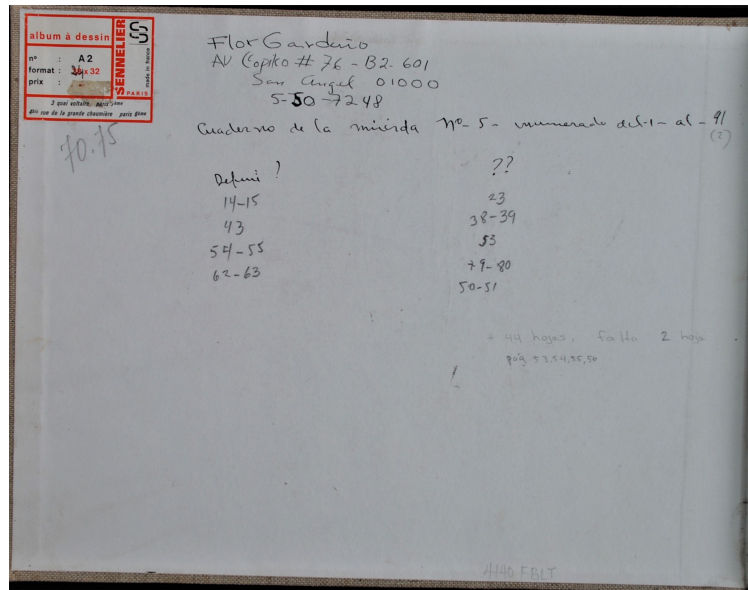 album à dessin
nº : A2
format : x 32
prix :
SENNELIER
PARIS
made in france
3 quai voltaire, paris 7ème
4bis rue de la grande chaumière paris 6ème
70.75
Flor Garduño
AV Copilco # 76 - B2-601
San Angel 01000
5-50-7248
Cuaderno de la mierda Nº-5- numerado del-1- al-91
(2)
Defini ?
14-15
43
54-55
62-63
??
23
38-39
53
79-80
50-51
+ 44 hojas, falta 2 hoja
pág 53,54,55,50
4140 FBLT